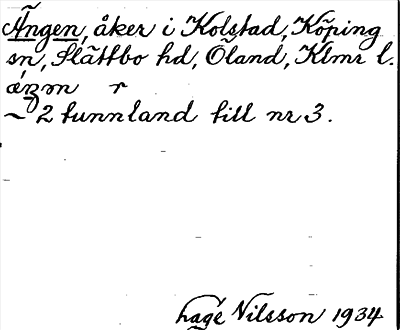 Ängen, åker i Kolstad, Köping
sn, Slättbo hd, Öland, Klmr l.
r
~ 2 tunnland till nr 3.
hage Nilsson 1934